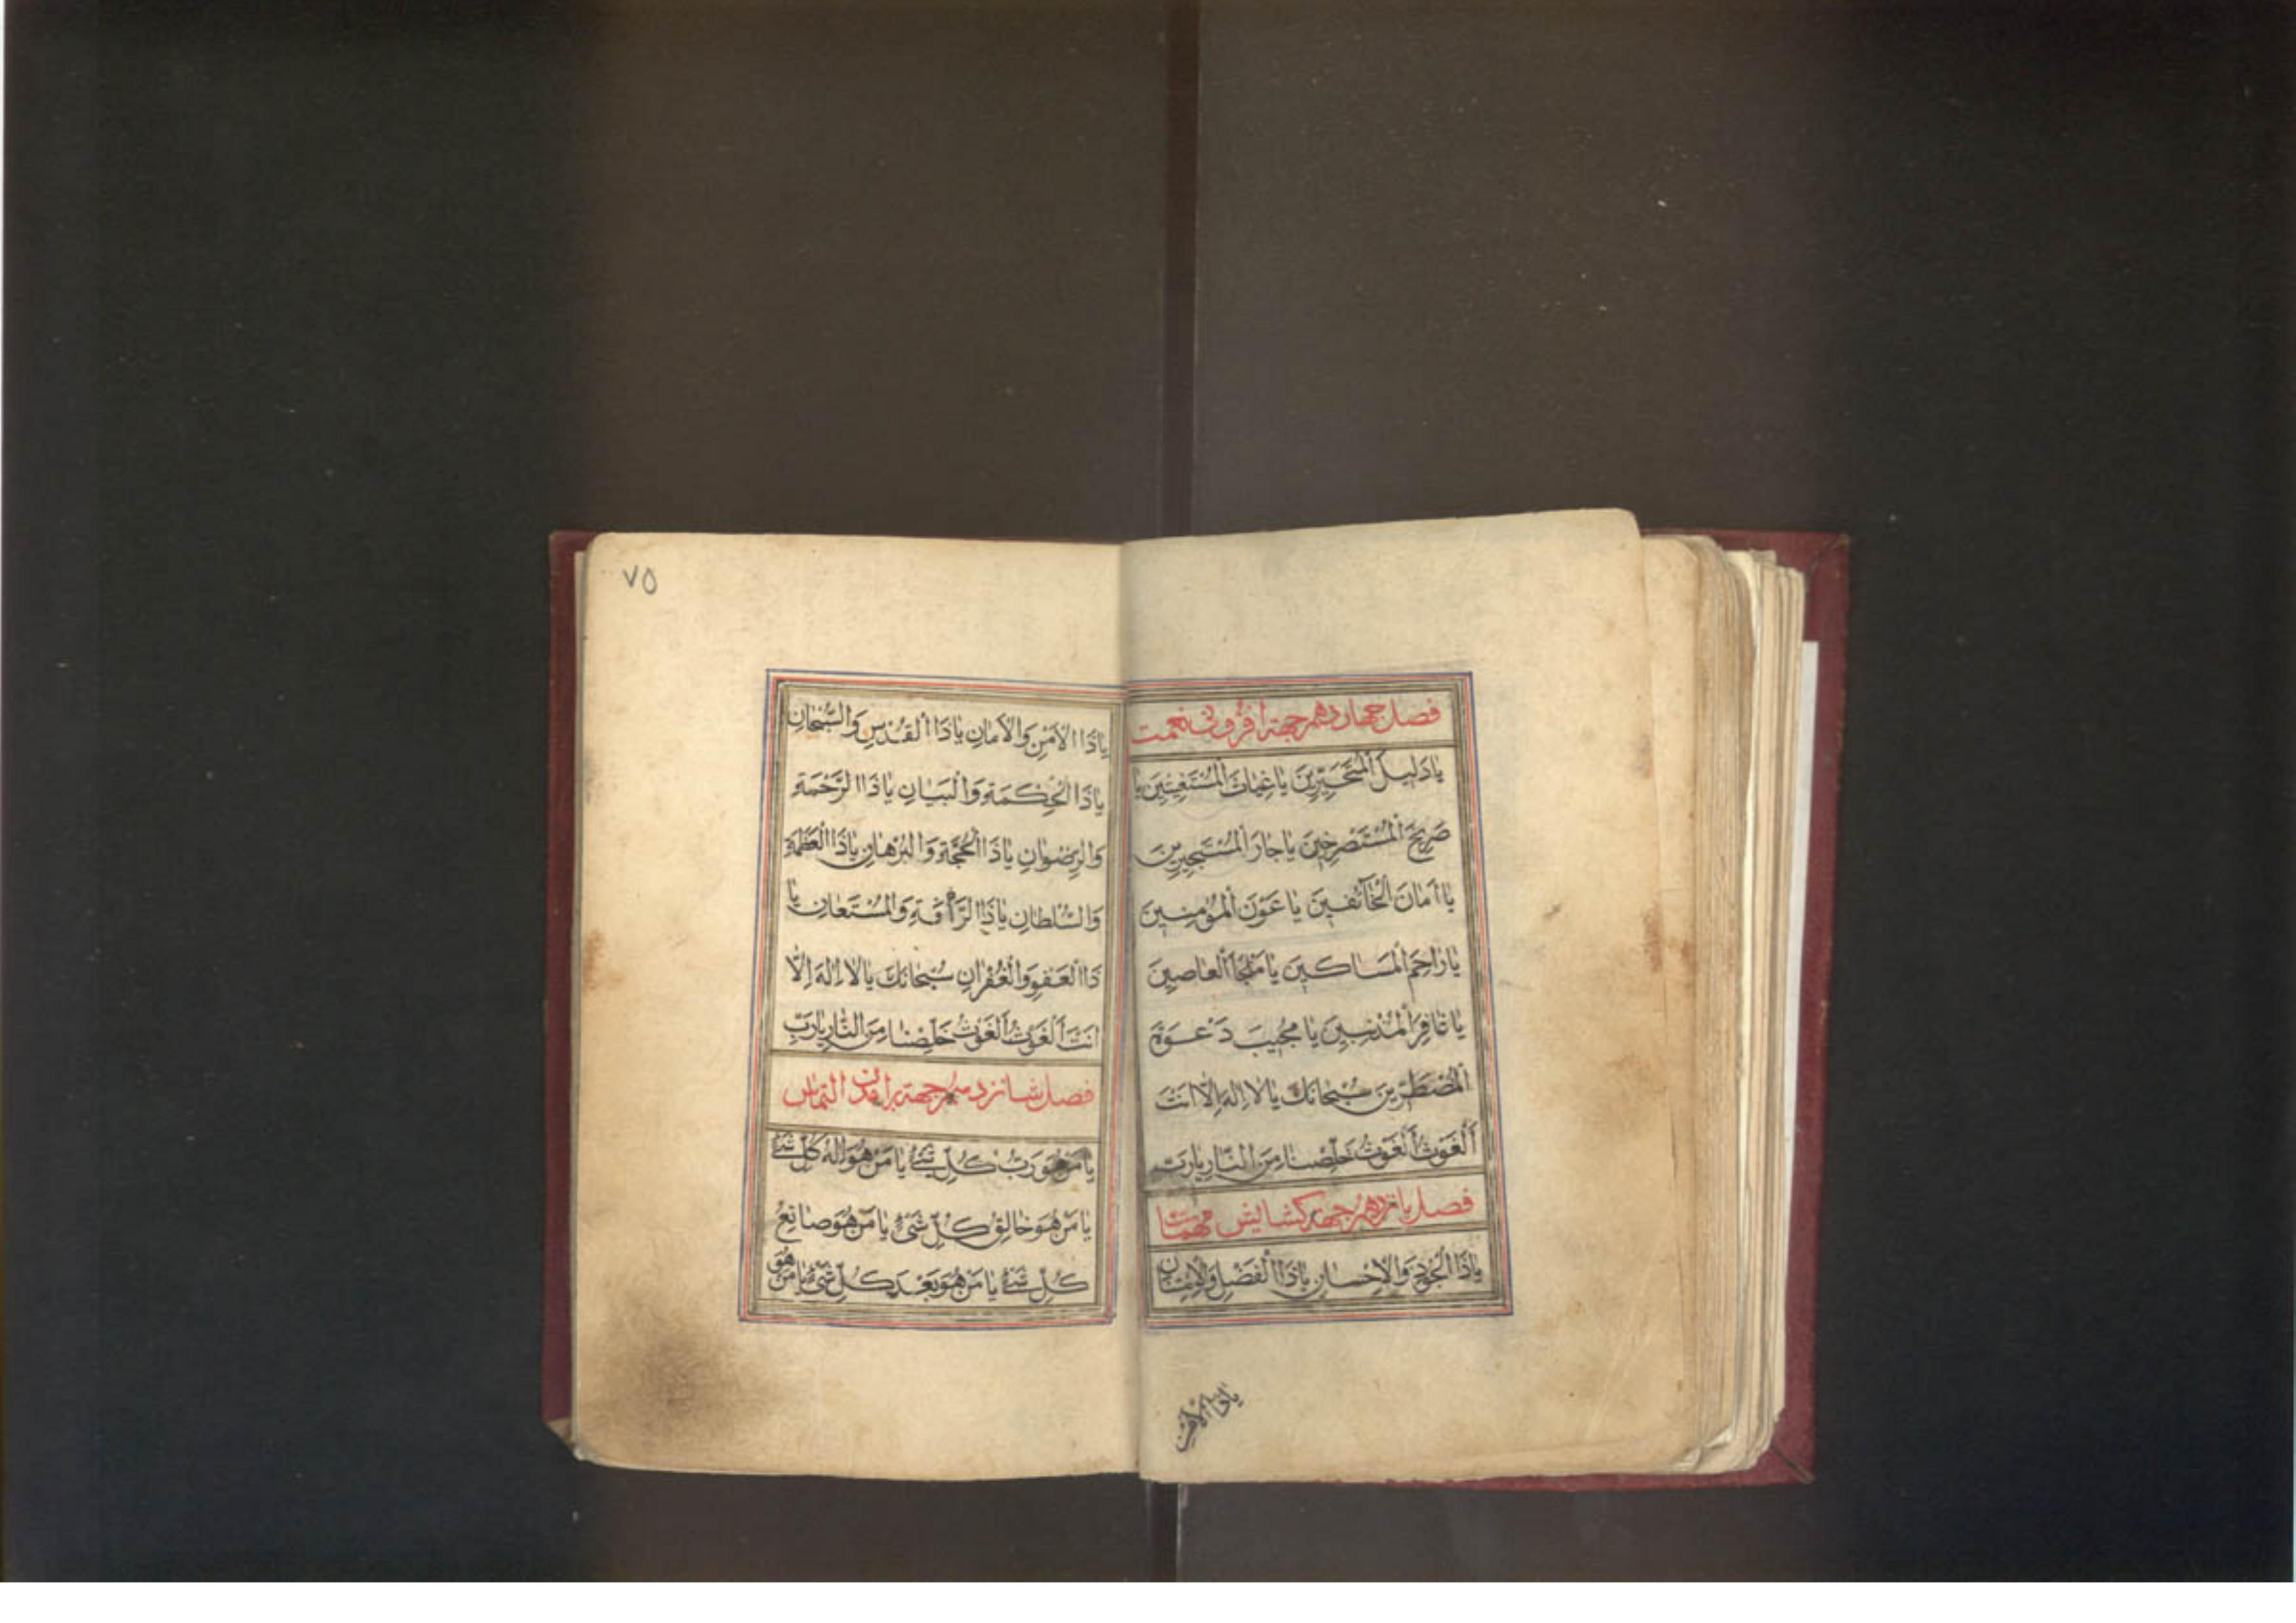 فصل چهاردهم جهة افزونی نعمت
یا دَلیلَ الْمُتَحَیِّرینَ یا غِیاثَ الْمُسْتَغیثینَ یا
صَریخَ الْمُسْتَصْرِخینَ یا جارَ الْمُسْتَجیرینَ
یا اَمانَ الْخآئفینَ یا عَوْنَ الْمُؤمِنینَ
یا راحِمَ الْمَساکینَ یا مَلْجَأَ الْعاصینَ
یا غافِرَ الْمُذْنِبینَ یا مُجیبَ دَعْوَةِ
الْمُضْطَرّینَ سُبْحانَكَ یا لا اِلهَ اِلّا اَنْتَ
اَلْغَوْثَ اَلْغَوْثَ خَلِّصْنا مِنَ النّارِ یا رَبِّ
فصل پانزدهم جهة کشایش مهمات
یا ذَا الْجُودِ وَالْاِحْسانِ یا ذَا الْفَضْلِ وَالْاِمْتِنانِ
یا ذا الامن
٧٥
یا ذَا الْاَمْنِ وَالْاَمانِ یا ذَا الْقُدْسِ وَالسُّبْحانِ
یا ذَا الْحِکْمَةِ وَالْبَیانِ یا ذَا الرَّحْمَةِ
وَالرِّضْوانِ یا ذَا الْحُجَّةِ وَالْبُرْهانِ یا ذَا الْعَظَمَةِ
وَالسُّلْطانِ یا ذَا الرَّأْفَةِ وَالْمُسْتَعانِ یا
ذَا الْعَفْوِ وَالْغُفْرانِ سُبْحانَكَ یا لا اِلهَ اِلّا
اَنْتَ اَلْغَوْثَ اَلْغَوْثَ خَلِّصْنا مِنَ النّارِ یا رَبِّ
فصل شانزدهم جهة التماس
یا مَنْ هُوَ رَبُّ کُلِّ شَیْءٍ یا مَنْ هُوَ اِلهُ کُلِّ شَیْءٍ
یا مَنْ هُوَ خالِقُ کُلِّ شَیْءٍ یا مَنْ هُوَ صانِعُ
کُلِّ شَیْءٍ یا مَنْ هُوَ بَعْدَ کُلِّ شَیْءٍ یا مَنْ هُوَ